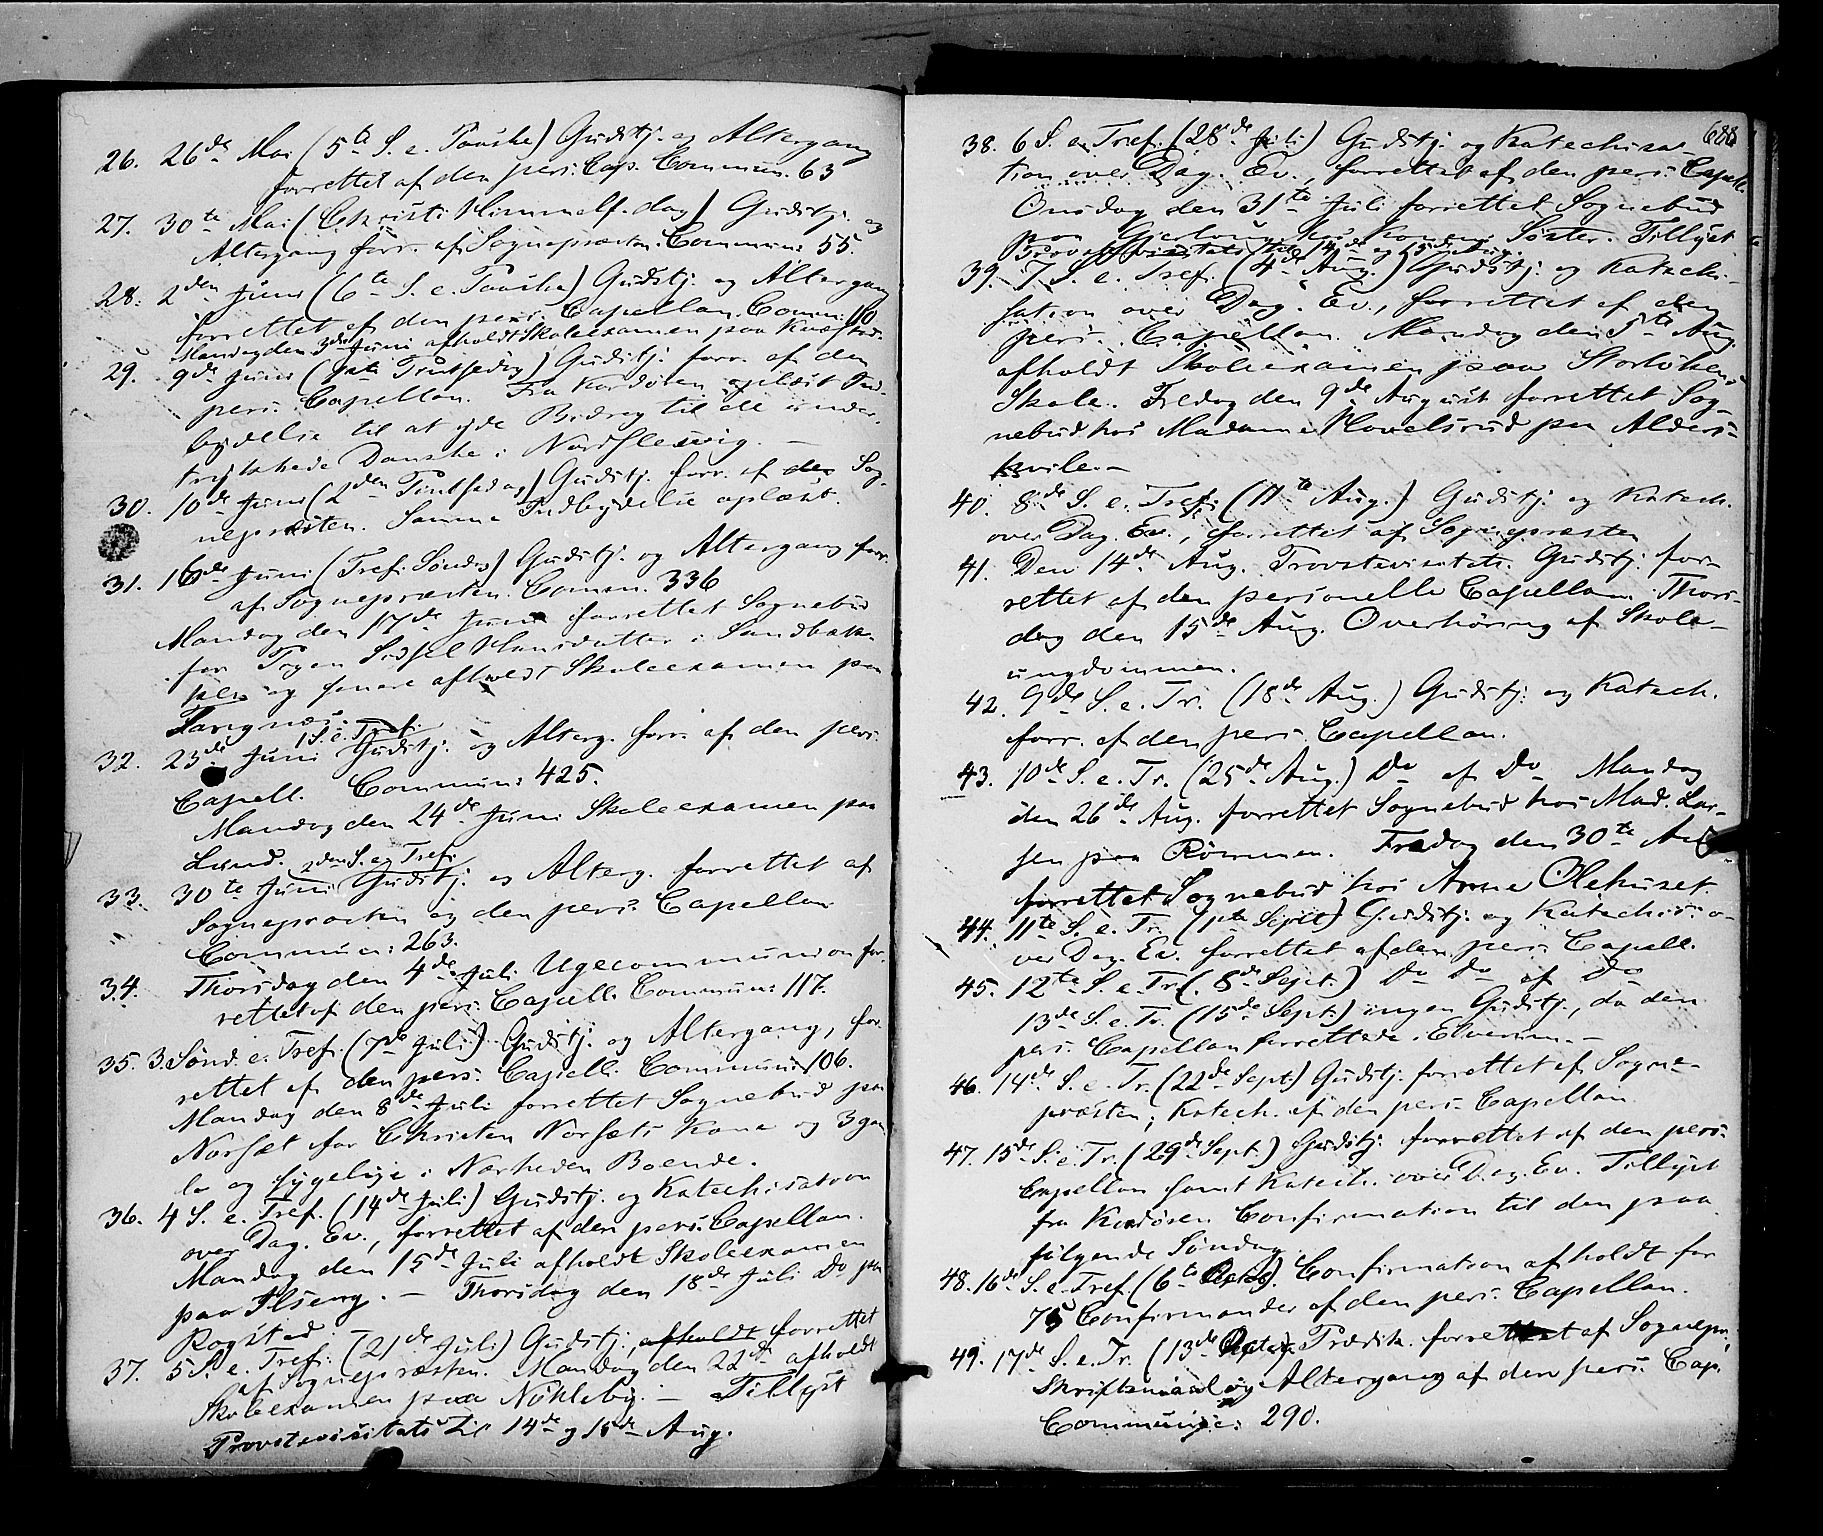 26. 26de Mai (5te S. e. Paaske) Gudstj. og Altergang
forrettet af den pers. Cap. Commun. 63
27. 30te Mai (Christi Himmelf. dag) Gudstj. og
Altergang forr. af Sognepræsten. Commun: 55.
28. 2den Juni (6te S. e. Paaske) Gudstj. og Altergang
forrettet af den pers. Capellan. Comm: 110
Mandag den 3die Juni afholdt Skoleexamen paa
29. 9de Juni (1ste Pintsedag) Gudstj. forr. af den
pers. Capellan. Fra Kordøren oplæst Ind-
bydelse til at yde Bidrag til de under-
trykkede Danske i Nordslesvig. —
30. 10de Juni (2den Pintsedag) Gudstj. forr. af den Sog-
nepræsten. Samme Indbydelse oplæst.
31. 16de Juni (Tref. Søndag) Gudstj. og Altergang forr.
af Sognepræsten. Comm. 336
Mandag den 17de Juni forrettet Sognebud
for Pigen Sidsel Hansdatter i Sandbæk-
og senere afholdt Skoleexamen paa
Tangnæs.
1 S. e. Tref.
32. 23de Juni Gudstj. og Alterg. forr. af den pers.
Capell. Commun: 425.
Mandag den 24de Juni Skoleexamen paa
Lund.
2den S. e. Tref.
33. 30te Juni Gudstj. og Alterg. forrettet af
Sognepræsten og den pers. Capellan
Commun: 263.
34. Thorsdag den 4de Juli Ugecommunion for-
rettet af den pers. Capell. Commun: 117.
35. 3. Sønd. e. Tref. (7de Juli) Gudstj. og Altergang, for-
rettet af den pers. Capell. Commun: 106.
Mandag den 8de Juli forrettet Sognebud paa
Norsæt for Christen Norsæts Kone og 3 gam-
le og sygelige i Nærheden Boende.
36. 4 S. e. Tref. (14de Juli) Gudstj. og Katechisation
over Dag. Ev., forrettet af den pers. Capellan.
Mandag den 15de Juli afholdt Skoleexamen
paa Ilseng. — Thorsdag den 18de Juli Do paa
Rogstad.
37. 5 S. e. Tref. (21de Juli) Gudstj., afholdt forrettet
af Sognepræsten. Mandag den 22de afholdt
Skoleexamen paa Nökleby. — Tillyst
Provstevisitats til 14de og 15de Aug.
688
38. 6 S. e. Tref. (28de Juli) Gudstj. og Katechisa-
tion over Dag. Ev., forrettet af den pers. Capell.
Onsdag den 31te Juli forrettet Sognebud
paa Konens Søster. Tillyst
Provstevisitats til 14de og 15de Aug.
39. 7 S. e. Tref. (4de Aug.) Gudstj. og Katechi-
sation over Dag. Ev., forrettet af den
pers. Capellan. Mandag den 5te Aug.
afholdt Skoleexamen paa
Skole. Fredag den 9de August forrettet Sog-
nebud hos Madame Hovelsrud paa Alders-
hvile. —
40. 8de S. e. Tref. (11te Aug.) Gudstj. og Katech.
over Dag. Ev., forrettet af Sognepræsten
41. Den 14de Aug. Provstevisitats. Gudstj. for-
rettet af den personelle Capellan. Thors-
dag den 15de Aug. Overhøring af Skole-
ungdommen.
42. 9de S. e. Tr. (18de Aug.) Gudstj. og Katech.
forr. af den pers. Capellan.
43. 10de S. e. Tr. (25de Aug.) Do af Do Mandag
den 26de Aug. forrettet Sognebud hos Mad. Lar-
sen paa Rommen. Fredag den 30te Aug.
forrettet Sognebud hos Anne Olehuset
44. 11te S. e. Tr. (1ste Sept.) Gudstj. og Katechis. o-
ver Dag. Ev. forrettet af den pers. Capell.
45. 12te S. e. Tr. (8de Sept.) Do Do af Do
13de S. e. Tr. (15de Sept.) ingen Gudstj., da den
pers. Capellan forrettede i Elverum. —
46. 14de S. e. Tr. (22de Sept.) Gudstj. forrettet af Sogne-
præsten; Katech. af den pers. Capellan
47. 15de S. e. Tr. (29de Sept.) Gudstj. forrettet af den pers.
Capellan samt Katech. over Dag. Ev. Tillyst
fra Kordøren Confirmation til den paa-
følgende Søndag.
48. 16de S. e. Tref. (6te Octob.) Confirmation afholdt for
75 Confirmander af den pers. Capellan.
49. 17de S. e. Tr. (13de Octob.) Prædik. forrettet af Sognepr.,
Skriftemaal og Altergang af den pers. Cap.
Communic: 290.